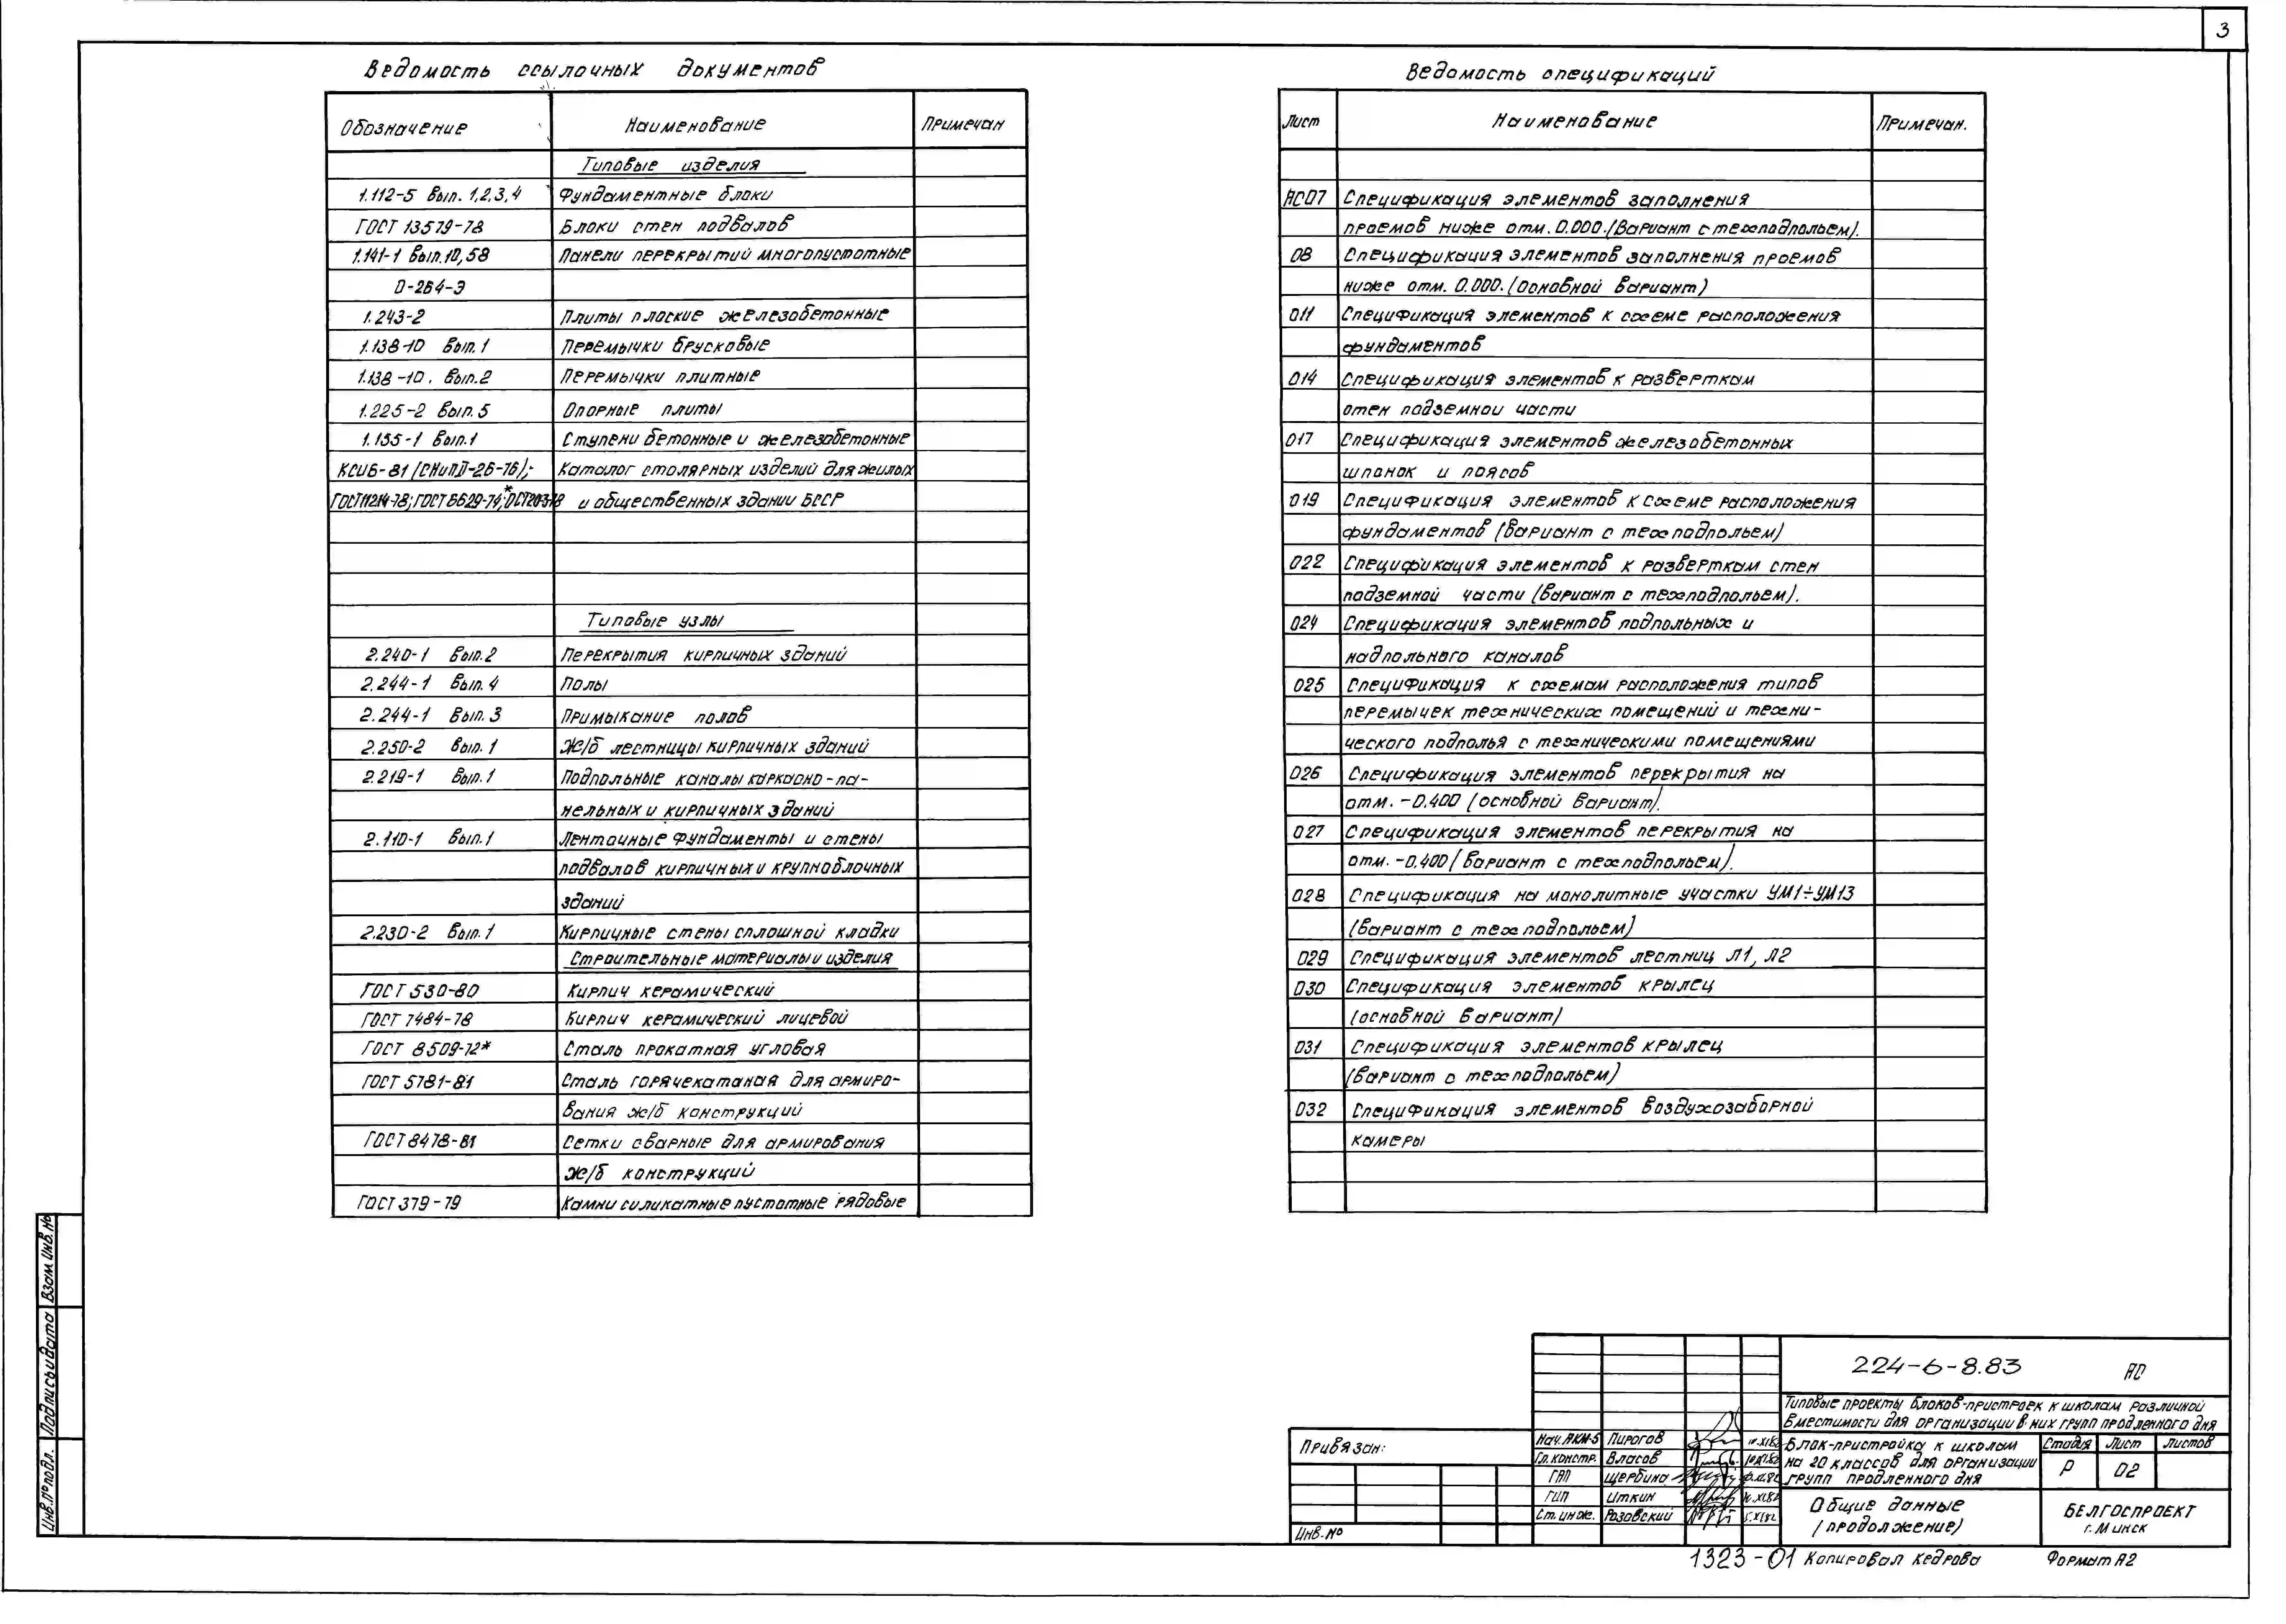 3
Ведомость ссылочных документов
Обозначение Наименование Примечан
Типовые изделия
1.112-5 Вып. 1,2,3,4 Фундаментные блоки
ГОСТ 13579-78 Блоки стен подвалов
1.141-1 Вып.10,58 Панели перекрытий многопустотные
0-264-Э
1.243-2 Плиты плоские железобетонные
1.138-10 Вып.1 Перемычки брусковые
1.138-10. Вып.2 Перемычки плитные
1.225-2 Вып.5 Опорные плиты
1.155-1 Вып.1 Ступени бетонные и железобетонные
КСИБ-81 (СНиП II-26-76); Каталог столярных изделий для жилых
ГОСТ 11214-78; ГОСТ 6629-74*; и общественных здании БССР
Типовые узлы
2.240-1 Вып.2 Перекрытия кирпичных зданий
2.244-1 Вып.4 Полы
2.244-1 Вып.3 Примыкание полов
2.250-2 Вып.1 Ж/б лестницы кирпичных зданий
2.219-1 Вып.1 Подпольные каналы каркасно-па-
нельных и кирпичных зданий
2.110-1 Вып.1 Ленточные фундаменты и стены
подвалов кирпичных и крупноблочных
зданий
2.230-2 Вып.1 Кирпичные стены сплошной кладки
Строительные материалы и изделия
ГОСТ 530-80 Кирпич керамический
ГОСТ 7484-78 Кирпич керамический лицевой
ГОСТ 8509-72* Сталь прокатная угловая
ГОСТ 5781-81 Сталь горячекатаная для армиро-
вания ж/б конструкций
ГОСТ 8478-81 Сетки сварные для армирования
ж/б конструкций
ГОСТ 379-79 Камни силикатные пустотные рядовые
Ведомость спецификаций
Лист Наименование Примечан.
АС07 Спецификация элементов заполнения
проемов ниже отм. 0.000. (вариант с техподпольем).
08 Спецификация элементов заполнения проемов
ниже отм. 0.000. (основной вариант)
011 Спецификация элементов к схеме расположения
фундаментов
014 Спецификация элементов к разверткам
стен подземной части
017 Спецификация элементов железобетонных
шпонок и поясов
019 Спецификация элементов к схеме расположения
фундаментов (вариант с техподпольем)
022 Спецификация элементов к разверткам стен
подземной части (вариант с техподпольем).
024 Спецификация элементов подпольных и
надпольного каналов
025 Спецификация к схемам расположения типов
перемычек технических помещений и техни-
ческого подполья с техническими помещениями
026 Спецификация элементов перекрытия на
отм. -0.400 (основной вариант).
027 Спецификация элементов перекрытия на
отм. -0.400 (вариант с техподпольем).
028 Спецификация на монолитные участки УМ1÷УМ13
(вариант с техподпольем)
029 Спецификация элементов лестниц Л1, Л2
030 Спецификация элементов крылец
(основной вариант)
031 Спецификация элементов крылец
(вариант с техподпольем)
032 Спецификация элементов воздухозаборной
камеры
Взам.инв.№
Подпись и дата
Инв.№подл.
Привязан:
Инв.№
Нач.АКМ-5 Пирогов
Гл.констр. Власов
ГАП Щербина
ГИП Иткин
Ст.инж. Розовский
224-6-8.83 АС
Типовые проекты блоков-пристроек к школам различной
вместимости для организации в них групп продленного дня
Блок-пристройка к школам
на 20 классов для организации
групп продленного дня
Стадия Лист Листов
Р 02
Общие данные
(продолжение)
БЕЛГОСПРОЕКТ
г. Минск
1323-01 Копировал Кедрова Формат А2